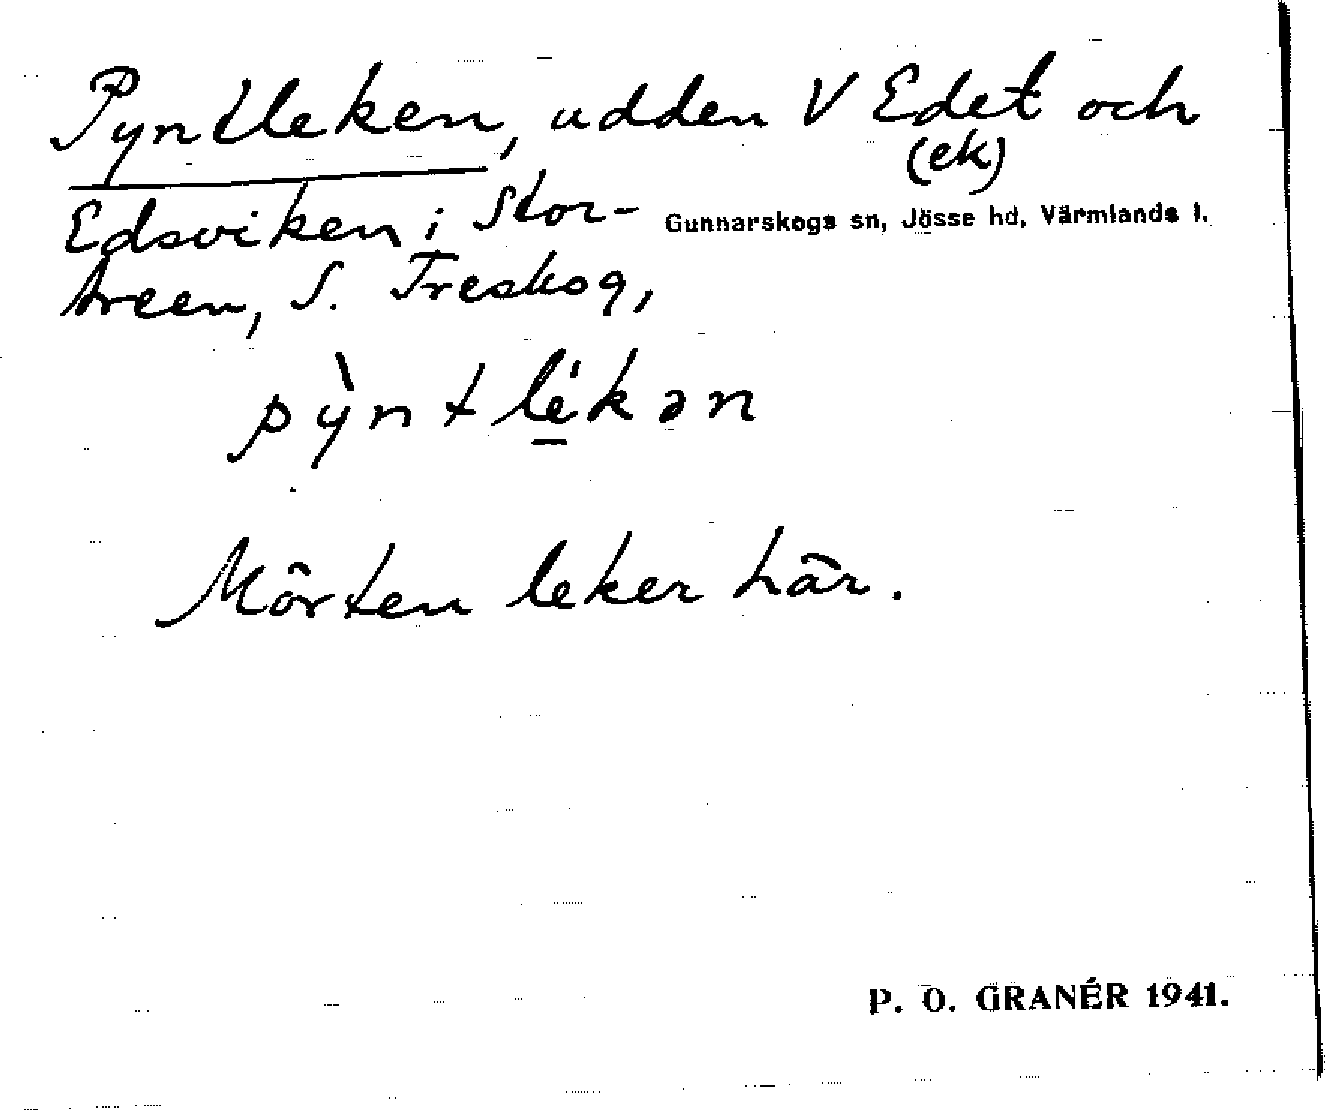 Pyntleken, udden V Edet och
(ek)
Edsviken i Stor-
Gunnarskogs sn, Jösse hd, Värmlands l.
Treen, S. Treskog,
pỳntle̱ ́kən
Mörten leker här.
P. O. GRANÉR 1941.